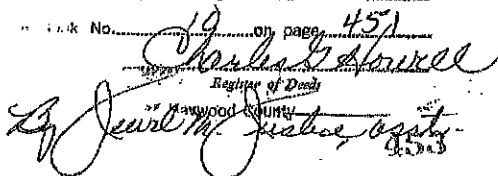 k No. 19 on page 451
Charles G Howell
Register of Deeds
Haywood County
By Jewel M. Justice, asst.